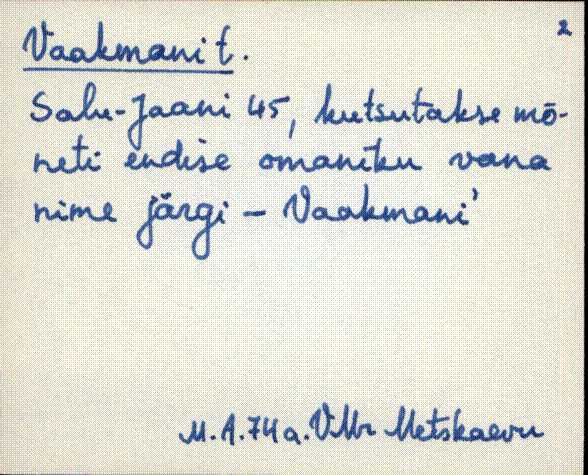 2
Vaakmani t.
Salu-Jaani 45, kutsutakse mõ-
neti endise omaniku vana
nime järgi – Vaakmani'
M.A.74 a. VMr Metskaevu